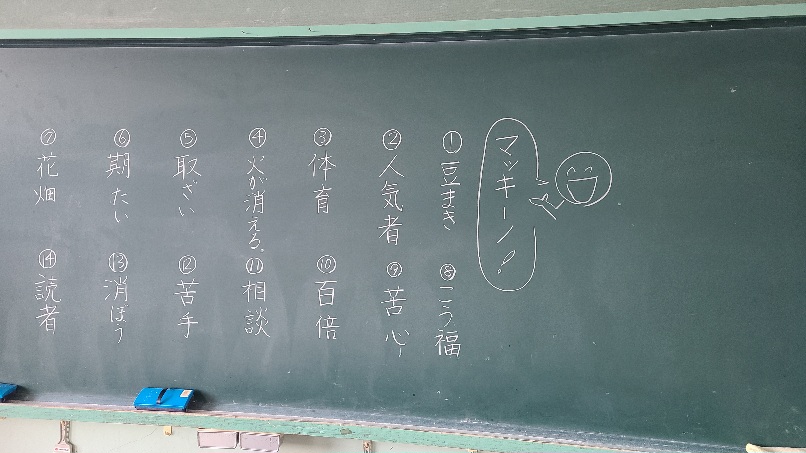 マッキーノ!
①豆まき
②人気者
③体育
④火が消える
⑤取ざい
⑥期たい
⑦花畑
⑧こう福
⑨苦心
⑩百倍
⑪相談
⑫苦手
⑬消ぼう
⑭読者